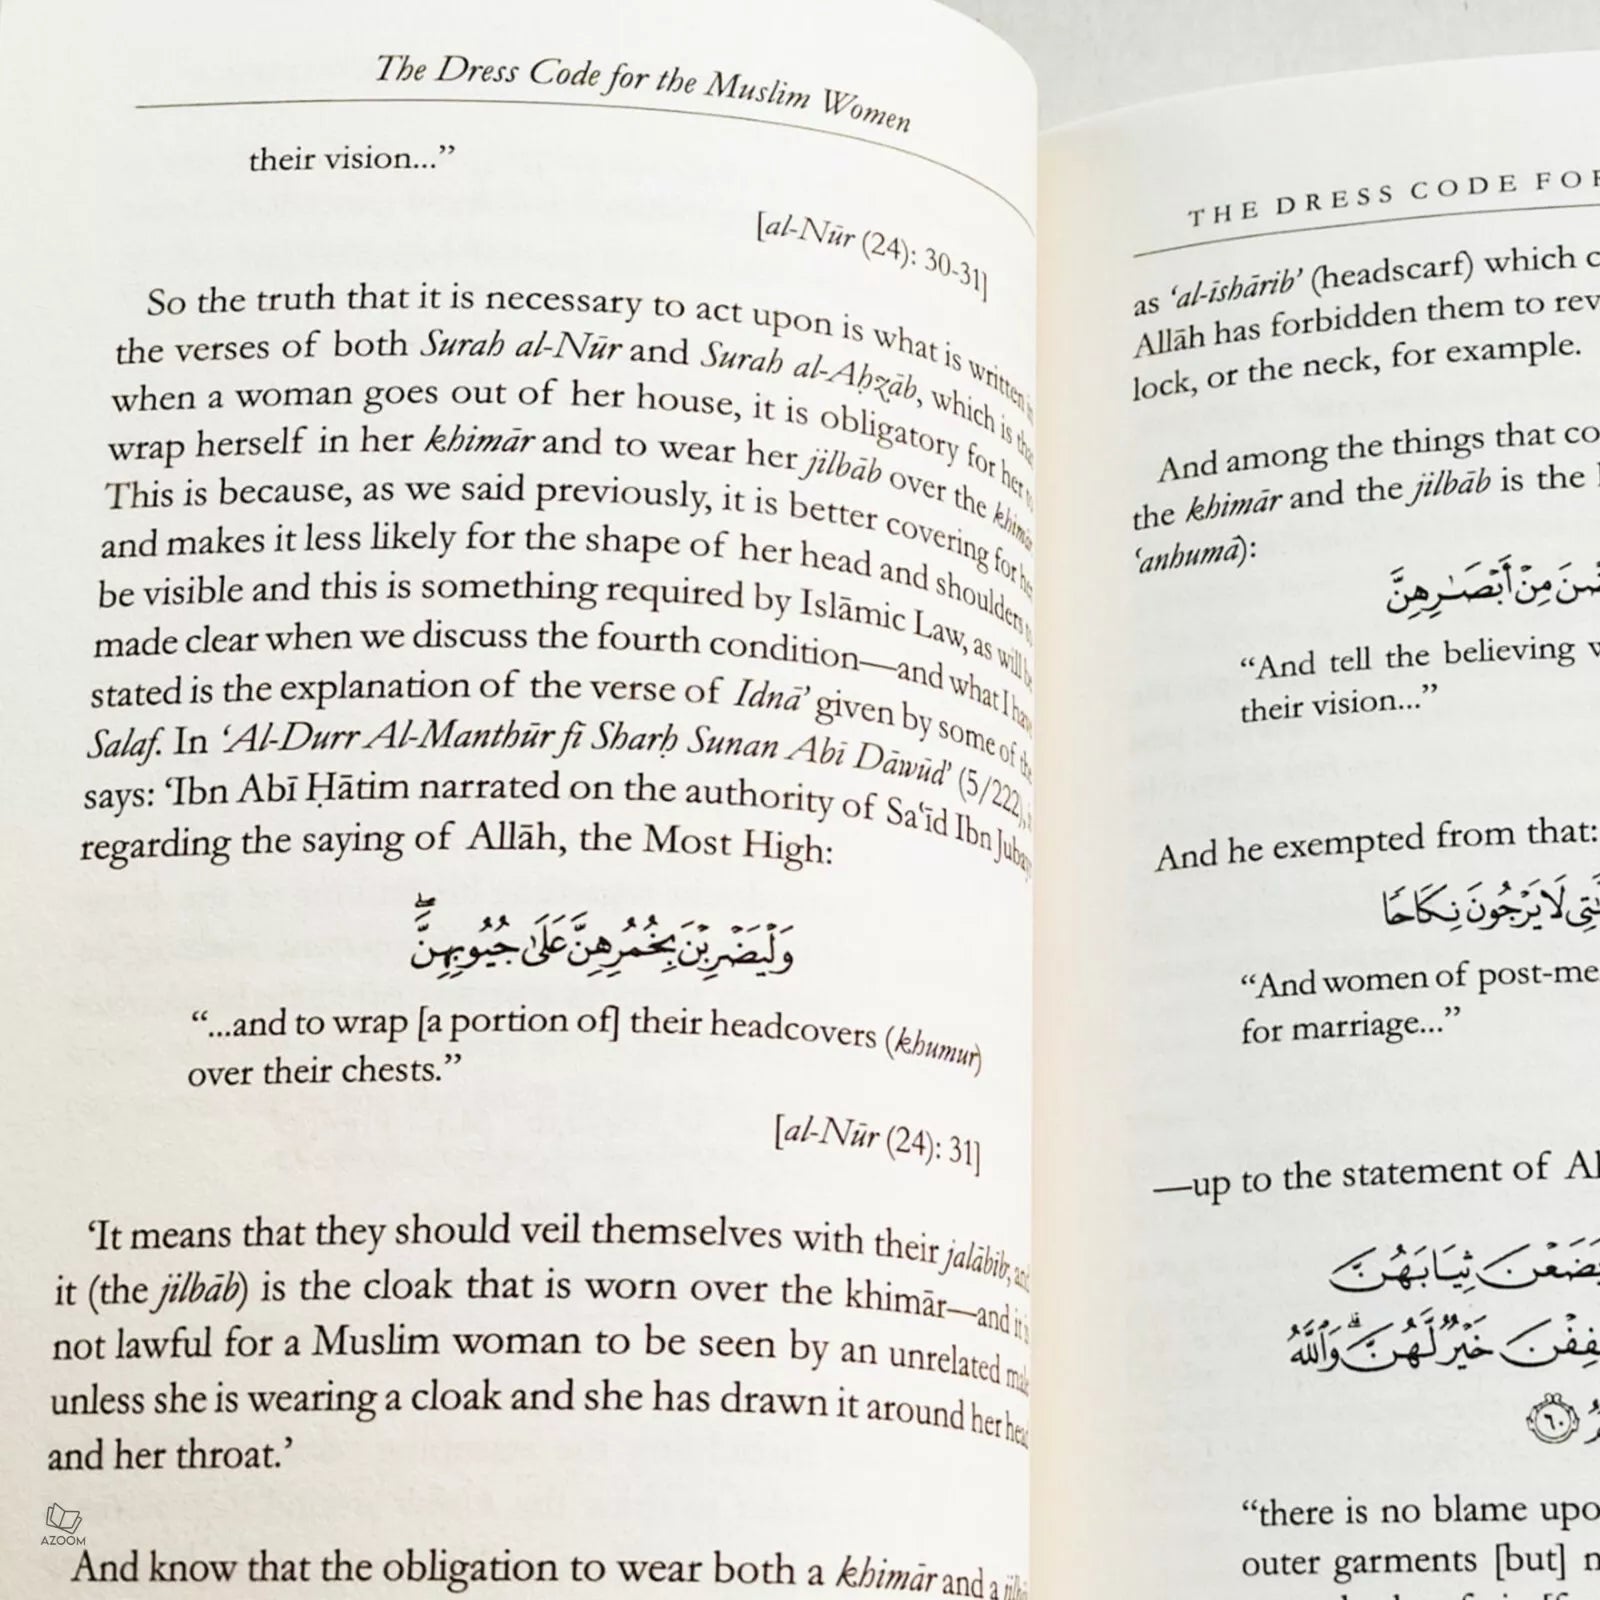 The Dress Code for the Muslim Women
their vision...”
[al-Nūr (24): 30-31]
So the truth that it is necessary to act upon is what is written in
the verses of both Surah al-Nūr and Surah al-Aḥzāb, which is that
when a woman goes out of her house, it is obligatory for her to
wrap herself in her khimār and to wear her jilbāb over the khimār
This is because, as we said previously, it is better covering for her
and makes it less likely for the shape of her head and shoulders to
be visible and this is something required by Islāmic Law, as will be
made clear when we discuss the fourth condition—and what I have
stated is the explanation of the verse of Idnā’ given by some of the
Salaf. In ‘Al-Durr Al-Manthūr fī Sharḥ Sunan Abī Dāwūd’ (5/222),
says: ‘Ibn Abī Ḥātim narrated on the authority of Sa‘īd Ibn Jubayr
regarding the saying of Allāh, the Most High:
وَلْيَضْرِبْنَ بِخُمُرِهِنَّ عَلَىٰ جُيُوبِهِنَّ ۖ
“...and to wrap [a portion of] their headcovers (khumur)
over their chests.”
[al-Nūr (24): 31]
‘It means that they should veil themselves with their jalābib, and
it (the jilbāb) is the cloak that is worn over the khimār—and it is
not lawful for a Muslim woman to be seen by an unrelated male
unless she is wearing a cloak and she has drawn it around her head
and her throat.’
AZOOM
And know that the obligation to wear both a khimār and a
THE DRESS CODE FOR
as ‘al-īshārib’ (headscarf) which
Allāh has forbidden them to
lock, or the neck, for example.
And among the things that
the khimār and the jilbāb is the
‘anhumā):
مِنْ أَبْصَـٰرِهِنَّ
“And tell the believing
their vision...”
And he exempted from that:
لَا يَرْجُونَ نِكَاحًا
“And women of
for marriage...”
—up to the statement of
ثِيَابَهُنَّ
خَيْرٌ لَّهُنَّ ۗ وَٱللَّهُ
٦٠
“there is no blame
outer garments [but]